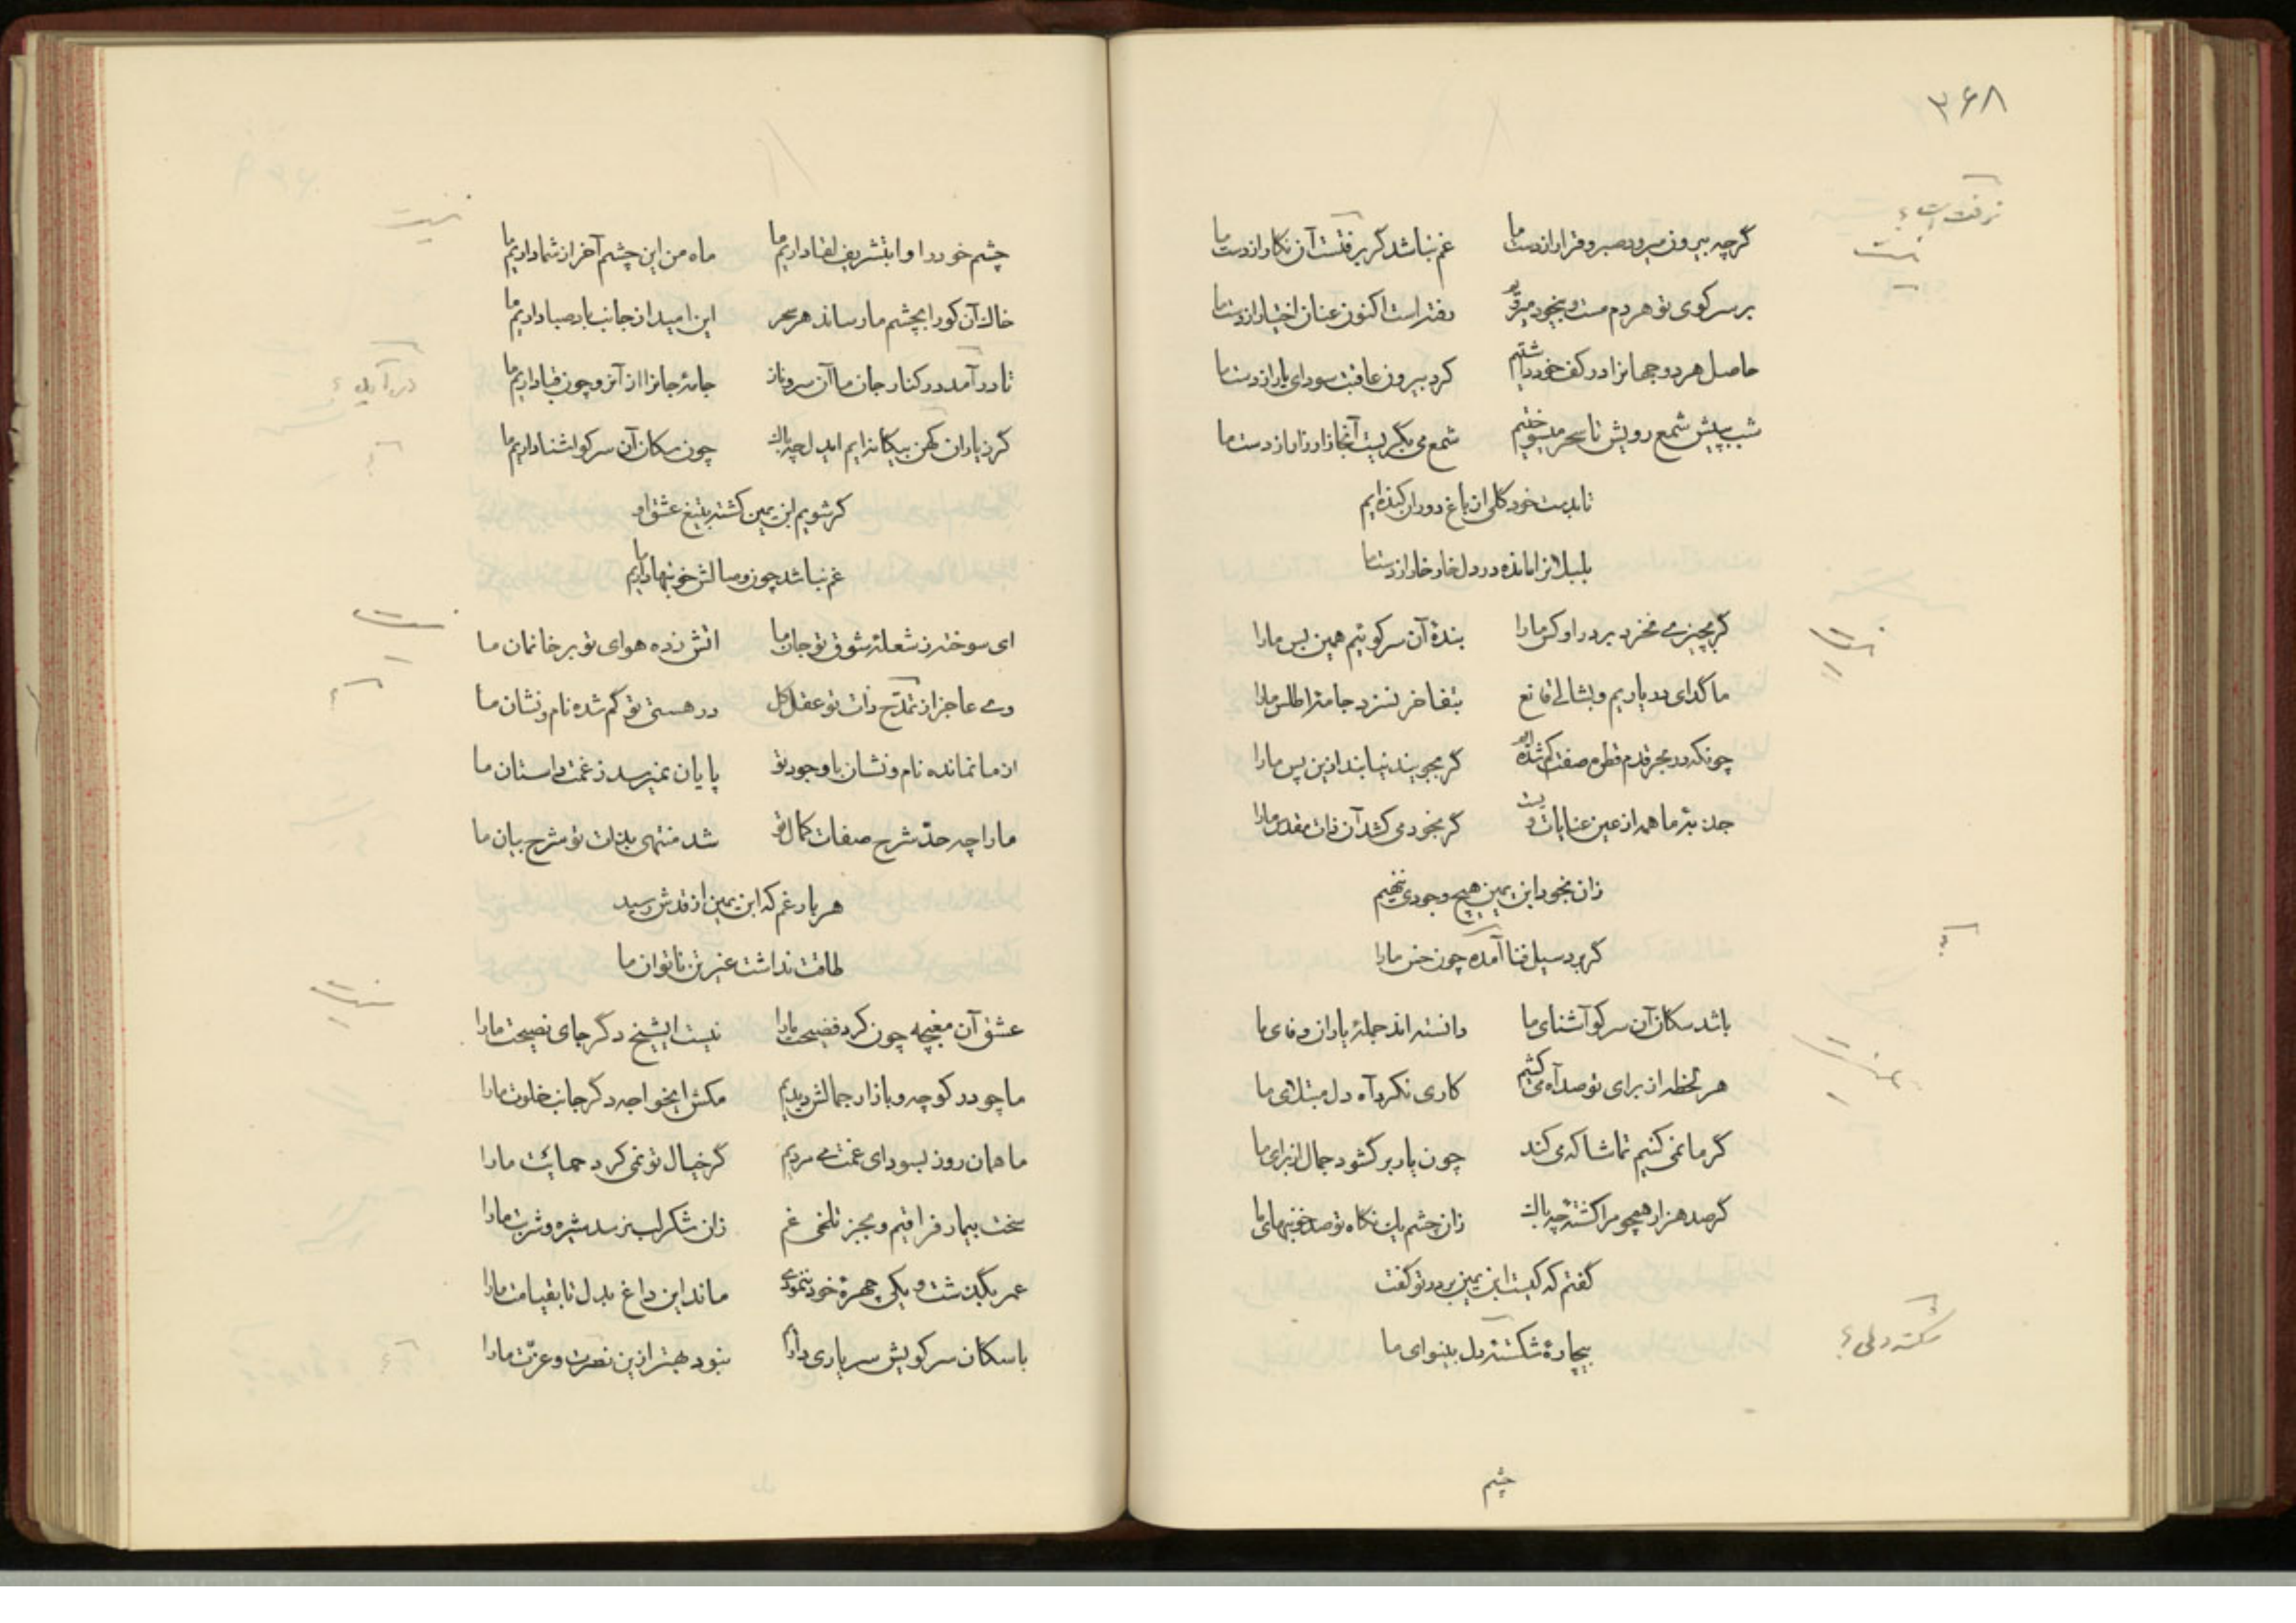 ۳۶۸
گرچه بیرون میرود صبر و قرار از دست ما غم نباشد گر برفتست آن نگار از دست ما
بر سر کوی تو هر دم مست و بیخود میرویم رفته است اکنون عنان اختیار از دست ما
حاصل هر دو جهانرا در کف خود داشتیم کرد بیرون عاقبت سودای یار از دست ما
شب به پیش شمع رویش تا سحر میسوختیم شمع می بگریست آنجا زار زار از دست ما
تا بدست خود گلی از باغ دوران کنده ایم
بلبلانرا مانده در دل خار خار از دست ما
گر بچیزی می نخرد بر در او کس ما را بندۀ آن سر کوئیم همین بس ما را
ما گدای در یاریم و بشالی قانع بتفاخر نسزد جامۀ اطلس ما را
چونکه در بحر قدم قطره صفت گم شده ایم گر بجویند نیابند ازین پس ما را
جذبۀ ما همه از عین عنایات ویست گر بخود می کشد آن ذات مقدس ما را
زان بخود ابن یمین هیچ وجودی ننهیم
گر برد سیل فنا آمده چون خس ما را
باشد سگان آن سر کو آشنای ما دانسته اند جملۀ یاران وفای ما
هر لحظه از برای تو صد آه می کشیم کاری نکرد آه دل مبتلای ما
گر ما نمی کنیم تماشا که می کند چون یار بر گشود جمال از برای ما
گر صد هزار همچو مرا کشتۀ چه باک زان چشم یک نگاه تو صد خونبهای ما
گفتم که کیست ابن یمین بر در تو گفت
بیچارۀ شکستۀ دل بینوای ما
شکسته دلی؟
چشم
چشم خود را وا بتشریف لقا داریم ما ماه من این چشم آخر از شما داریم ما
خاک آن کو را بچشم ما رساند هر سحر این امید از جانب باد صبا داریم ما
تا در آمد در کنار جان ما آن سرو ناز جامۀ جانرا از آنرو چون قبا داریم ما
گر ز یاران کهن بیگانه ایم ایدل چه باک چون سگان آن سر کو اشنا داریم ما
گر شویم ابن یمین کشته بتیغ عشق او
غم نباشد چون وصالش خونبها داریم ما
ای سوخته ز شعلۀ شوق تو جان ما اتش زده هوای تو بر خانمان ما
وی عاجز از تمدح ذات تو عقل کل در هستی تو گم شده نام و نشان ما
از ما نمانده نام و نشان با وجود تو پایان نمیرسد ز غمت داستان ما
ما را چه حدّ شرح صفات کمال تو شد منتهی بذات تو شرح بیان ما
هر بار غم که ابن یمین از قدش رسید
طاقت نداشت غیر تن ناتوان ما
عشق آن مغبچه چون کرد فضیحت ما را نیست ایشیخ دگر جای نصیحت ما را
ما چو در کوچه و بازار جمالش دیدیم مکش ایخواجه دگر جانب خلوت ما را
ما همان روز بسودای غمت می مردیم گر خیال تو نمی کرد حمایت ما را
سخت بیمار فراقیم و بجز تلخی غم زان شکر لب نرسد شیره و شربت ما را
عمر بگذشت و یکی چهرۀ خود ننمودی ماند این داغ بدل تا بقیامت ما را
با سگان سر کویش سر یاری داریم نبود بهتر ازین نصرت و عزّت ما را